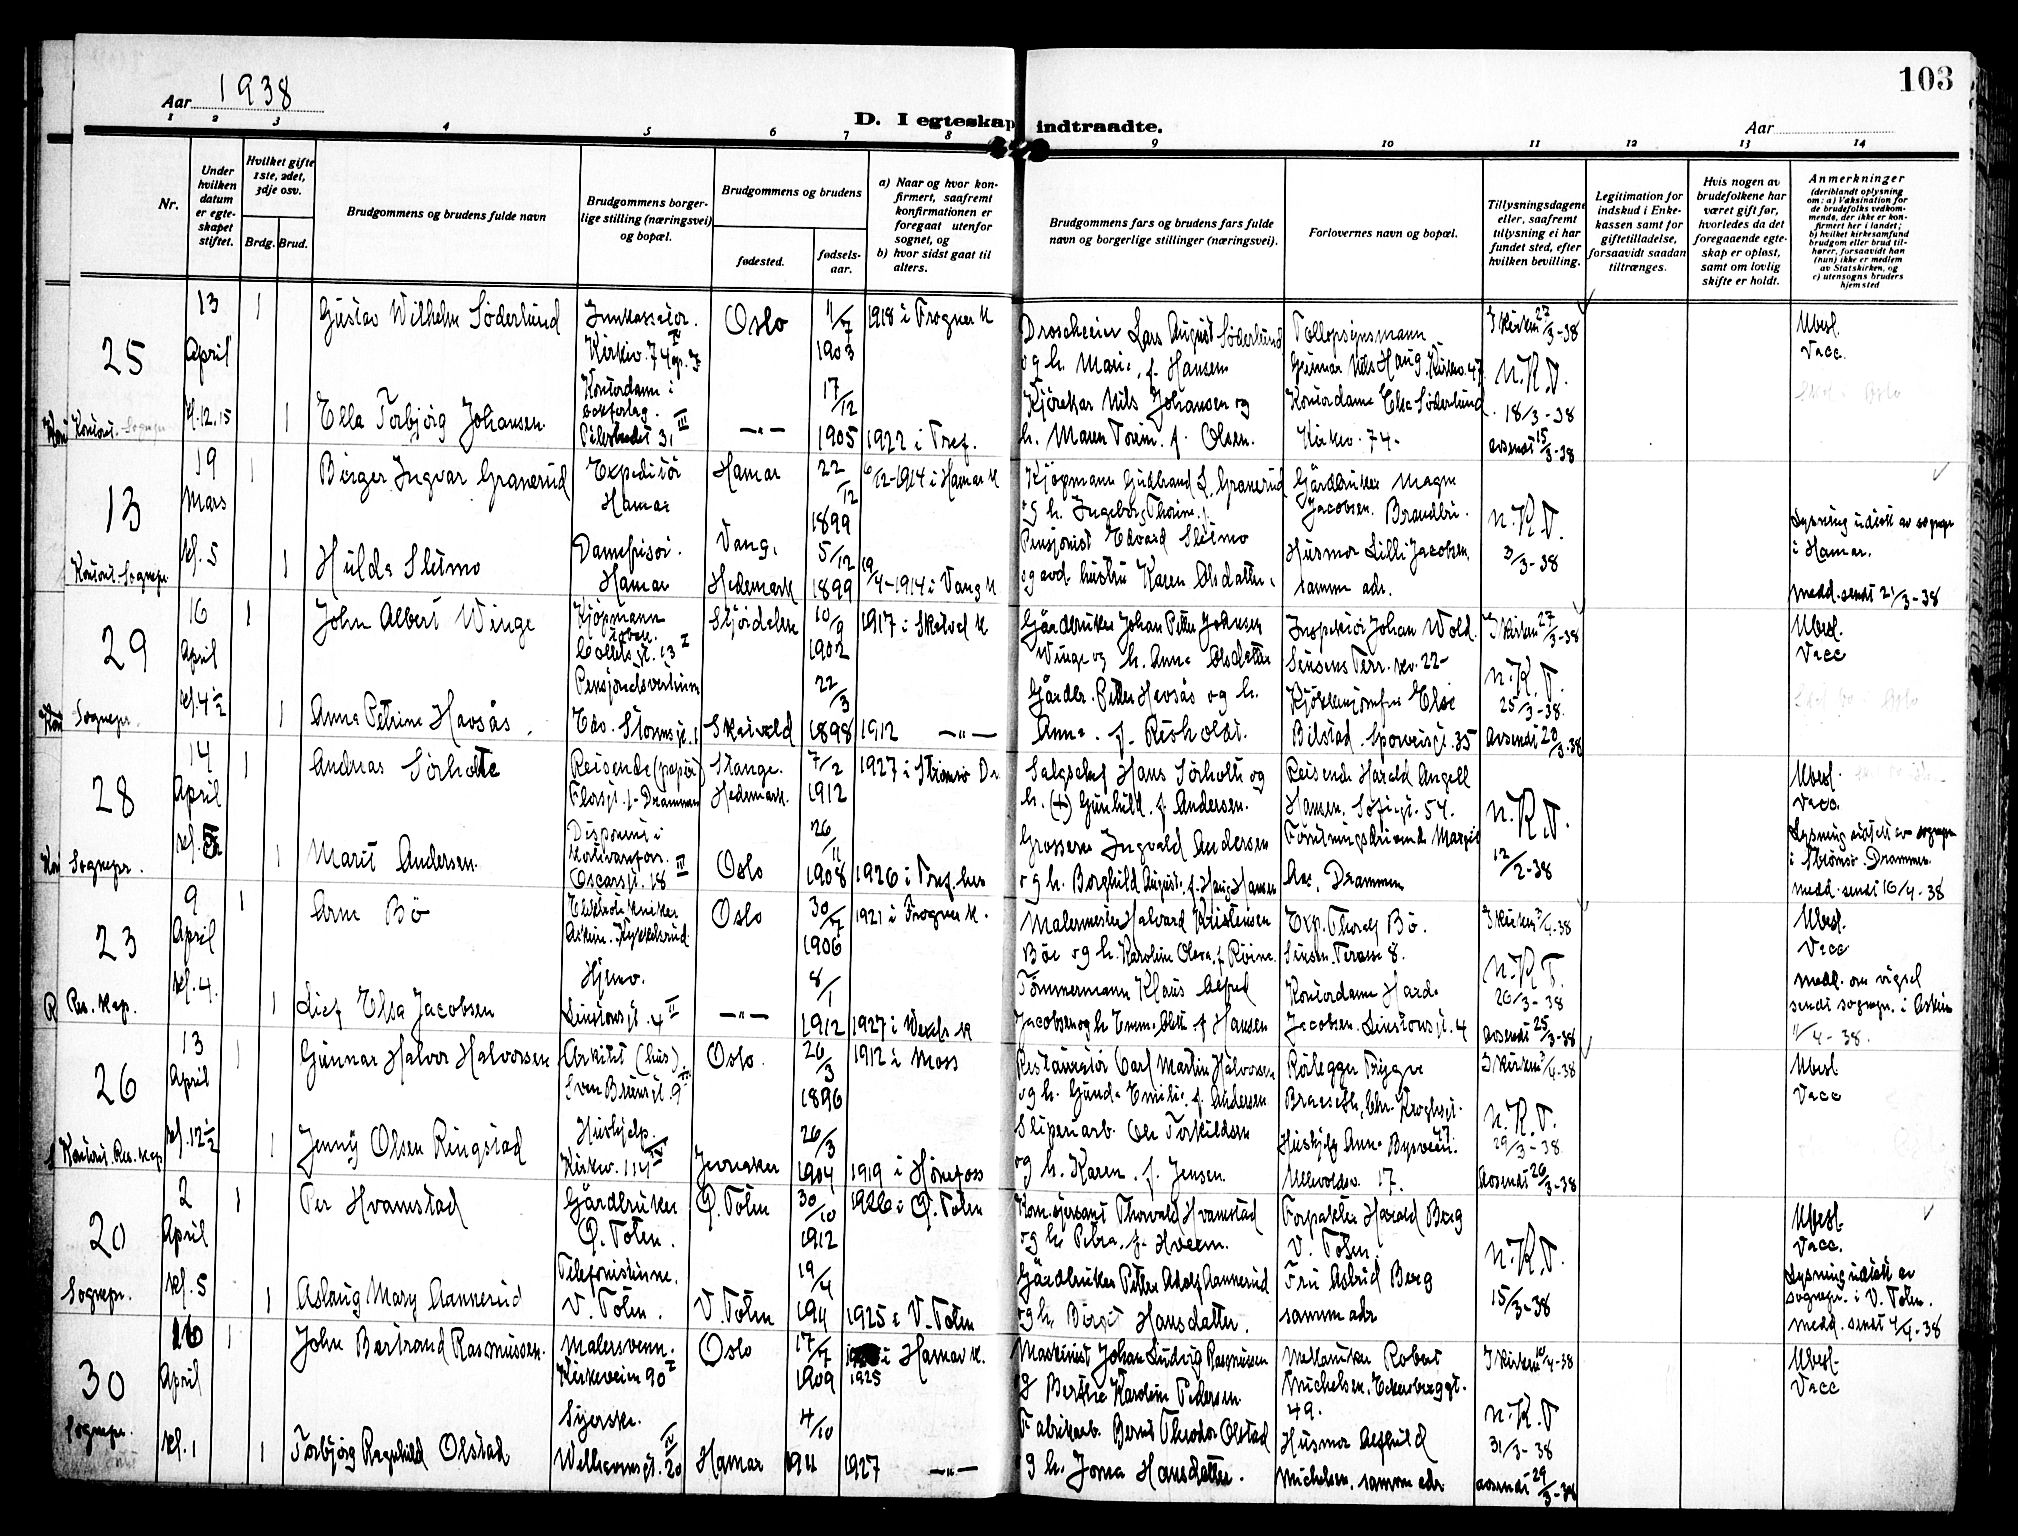 103
Aar 1938
D. I egteskap indtraadte.
Aar
1 2 3 4 5 6 7 8 9 10 11 12 13 14
Nr.
Under hvilken datum er egteskapet stiftet.
Hvilket gifte 1ste, 2det, 3dje osv.
Brdg. Brud.
Brudgommens og brudens fulde navn
Brudgommens borgerlige stilling (næringsvei) og bopæl.
Brudgommens og brudens
fødested.
fødselsaar.
a) Naar og hvor konfirmert, saafremt konfirmationen er foregaat utenfor sognet, og
b) hvor sidst gaat til alters.
Brudgommens fars og brudens fars fulde navn og borgerlige stillinger (næringsvei).
Forlovernes navn og bopæl.
Tillysningsdagene eller, saafremt tillysning ei har fundet sted, efter hvilken bevilling.
Legitimation for indskud i Enkekassen samt for giftetilladelse, forsaavidt saadan tiltrænges.
Hvis nogen av brudefolkene har været gift før, hvorledes da det foregaaende egteskap er opløst, samt om lovlig skifte er holdt.
Anmerkninger
(deriblandt oplysning om: a) Vaksination for de brudefolks vedkommende, der ikke er konfirmert her i landet;
b) hvilket kirkesamfund brudgom eller brud tilhører, forsaavidt han (hun) ikke er medlem av Statskirken, og
c) utensogns bruders hjemsted
25
13 April kl. 12.15
1 Gustav Wilhelm Söderlund
Inkassator. Kirkev. 74
Oslo
11/7 1903
1918 i Frogner K
Drosjeeier Lars August Söderlund og h. Marie, f. Hansen
Gunnar Nils Haug, Kirkev. 47
I kirken 27/3-38
N.K.T.
18/3-38
avsendt 15/3-38
Ubesl.
Vacc.
1 Ella Torbjörg Johansen
Kontordame i
Pilestredet 31 III
—"—
17/12 1905
1922 i Tref.
Kjörekar Nils Johansen og h. Maren f. Olsen.
Kontordame Else Söderlund
Kirkev. 74-
13
19 Mars kl. 5
1 Birger Ingvar Granerud
Expeditör Hamar
Hamar
22/12 1899
12-1914 i Hamar K
Kjöpmann Gudbrand L. Granerud og h. Ingeborg
Gårdbruker Magne Jacobsen. Brandbu.
N.K.T.
3/3-38
Lysning utstedt av sognepr i Hamar.
medd. sendt 21/3-38
Kontoret. Sognepr.
1 Hulda Slemo
Damefrisör. Hamar
Vang. Hedemark
5/12 1899
19/4-1914 i Vang K
Pensjonist Edvard Slemo og avd. hustru Karen Olsdatter.
Husmor Lilli Jacobsen samme adr.
29
16 April kl. 4 1/2
1 John Albert Winge
Kjöpmann
Colletts gt. 13 I
Stjördalen
10/9 1902
1917 i Skatval K
Gårdbruker Johan Petter Johnsen Winge og h. Anna Olsdatter
Inspektör Johan Wold. Sinsens Terr. 22-
I kirken 27/3-38
N.K.T.
25/3-38.
avsendt 20/3-38
Ubesl.
Vacc
Sognepr.
1 Anna Petrine Havsås
Pensjonatsvertinne
Edv. Storms gt. 1
Skatvald
22/3 1898
1912 —"—
Gårdbr. Petter Havsås og h. Anna. f. Reholdt.
Kjökkenjomfru Else Bilstad. Sporveisgt. 35
28
14 April kl. 5
1 Andreas Sörholte
Reisende (papir)
Drammen
Stange. Hedemark.
7/2 1912
1927 i Strömsö Dr.
Salgschef Hans Sörholte og h. (+) Gunhild. f. Andersen.
Reisende Harald Angell Hansen. Sofiegt. 54.
N.K.T.
12/2-38
Ubesl.
Vacc.
Lysning utstedt av sognepr i Strömsö. Drammen.
medd. sendt 16/4-38
Sognepr.
1 Marit Andersen.
Oscarsgt. 18 III
Oslo
26/11 1908
1926 i Tref. her
Grosserer Ingvald Andersen og h. Borghild August. f. Haug Hansen
Forretningsdrivende Margit Aas, Drammen
23
9 April kl. 4.
1 Arne Bö
Elektrotekniker Askim. Kykkelsrud.
Oslo
30/7 1906
1921 i Frogner K.
Malermester Halvard Kristensen Böe og h. Karoline Olava f. Röine.
Exp. Thoralf Bö. Sinsen. Terasse 8.
I kirken 3/4-38
N.K.T.
26/3-38
avsendt 25/3-38
Ubesl.
Vacc
medd. om vigsel sendt sognepr. i Askim 11/4-38.
Res. Kap.
1 Lief Elsa Jacobsen
Hjemv. Linstows gt. 4 II
—"—
8/1 1912
1927 i Vaalr K
Tömmermann Klaus Alfred Jacobsen og h. f. Hansen
Kontordame Harda Jacobsen. Linstowsgt. 4
26
13 April kl. 12 1/2
1 Gunnar Halvor Halvorsen
Arkitekt (hus). Sven Bruns gt. 9 III
Oslo.
26/3 1896
1912 i Moss
Restauratör Carl Martin Halvorsen og h. Gunda Emilie f. Andersen
Rörlegger Trygve Braseth, Chr. Kroghsgt.
I kirken 3/4-38
N.K.T.
29/3-38
avsendt 26/3-38
Ubesl
Vacc
Kontoret. Res. Kap.
1 Jenny Olsen Ringstad
Hushjelp. Kirkev. 114 IV
Jevnaker
26/3 1904
1919 i Hönefoss
Sliperiarb. Ole Torkildsen og h. Karen. f. Jensen.
Hushjelp Anna Bysveen. Ullevoldsv. 17.
20
2 April kl. 5
1 Per Hvamstad
Gårdbruker Ö. Toten.
Ö. Toten
30/10 1912
1926 i Ö. Toten
Kom.sjersant Thorvald Hvamstad og h. Petra. f. Hveem.
Forpakter Harald Berg V. Toten.
N.K.T.
15/3-38
Ubesl.
Vacc.
Lysning utstedt av sognepr. i V. Toten.
medd. sendt 4/4-38
Sognepr.
1 Aslaug Mary Aannerud
Telefonistinne. V. Toten.
V. Toten
19/4 1911
1925 i V. Toten
Gårdbruker Petter Adolf Aannerud og h. Birgit Hansdatter.
Fru Astrid Berg samme adr
30
16 April kl. 1
1 John Bertrand Rasmussen.
Malersvenn. Kirkeveien 90 I
Oslo
17/7 1909
1925 i Hamar K.
Maskinist Johan Ludvig Rasmussen & Berthe Karoline Pedersen.
Mekaniker Robert Michelsen. Eckersberggt. 49.
I kirken 10/4-38
N.K.T
31/3-38
avsendt 29/3-38
Ubesl.
Vacc
Sognepr.
1 Torbjörg Ragnhild Olstad
Syerske. Wilhelmsgt. 20 IV
Hamar
4/10 1911
1927 —"—
Fabrikarb. Bernt Theodor Olstad & h. Jonna Hansdatter.
Husmor Alfhild Michelsen, samme adr